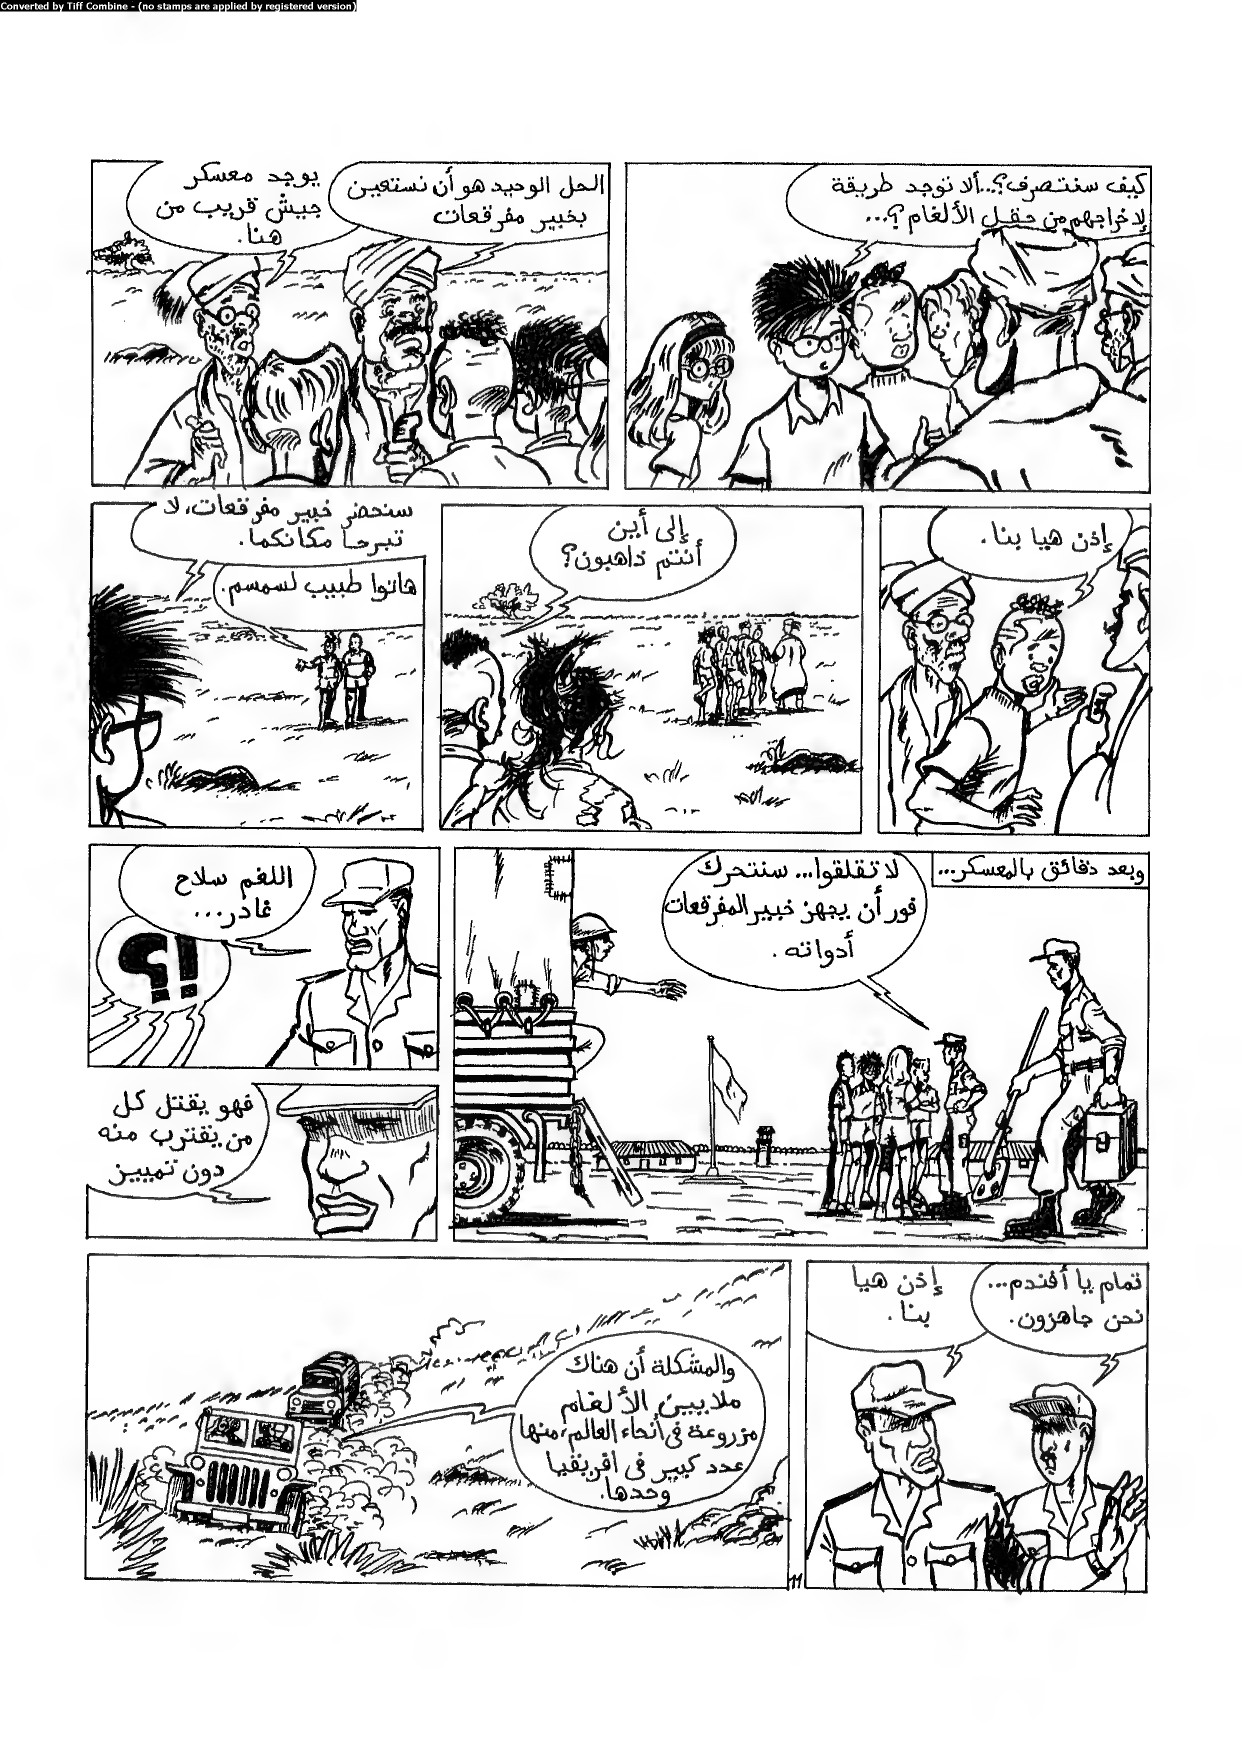 Converted by Tiff Combine - (no stamps are applied by registered version)
كيف سنتصرف؟..ألا توجد طريقة
لإخراجهم من حقل الألغام؟...
الحل الوحيد هو أن نستعين
بخبير مفرقعات
يوجد معسكر
جيش قريب من
هنا.
إذن هيا بنا.
إلى أين
أنتم ذاهبون؟
سنحضر خبير مفرقعات، لا
تبرحا مكانكما.
هاتوا طبيب لسمسم.
وبعد دقائق بالمعسكر...
لا تقلقوا... سنتحرك
فور أن يجهز خبير المفرقعات
أدواته.
اللغم سلاح
غادر...
!؟
فهو يقتل كل
من يقترب منه
دون تمييز
تمام يا أفندم...
نحن جاهزون.
إذن هيا
بنا.
والمشكلة أن هناك
ملايين الألغام
مزروعة فى أنحاء العالم، منها
عدد كبير فى افريقيا
وحدها.
11